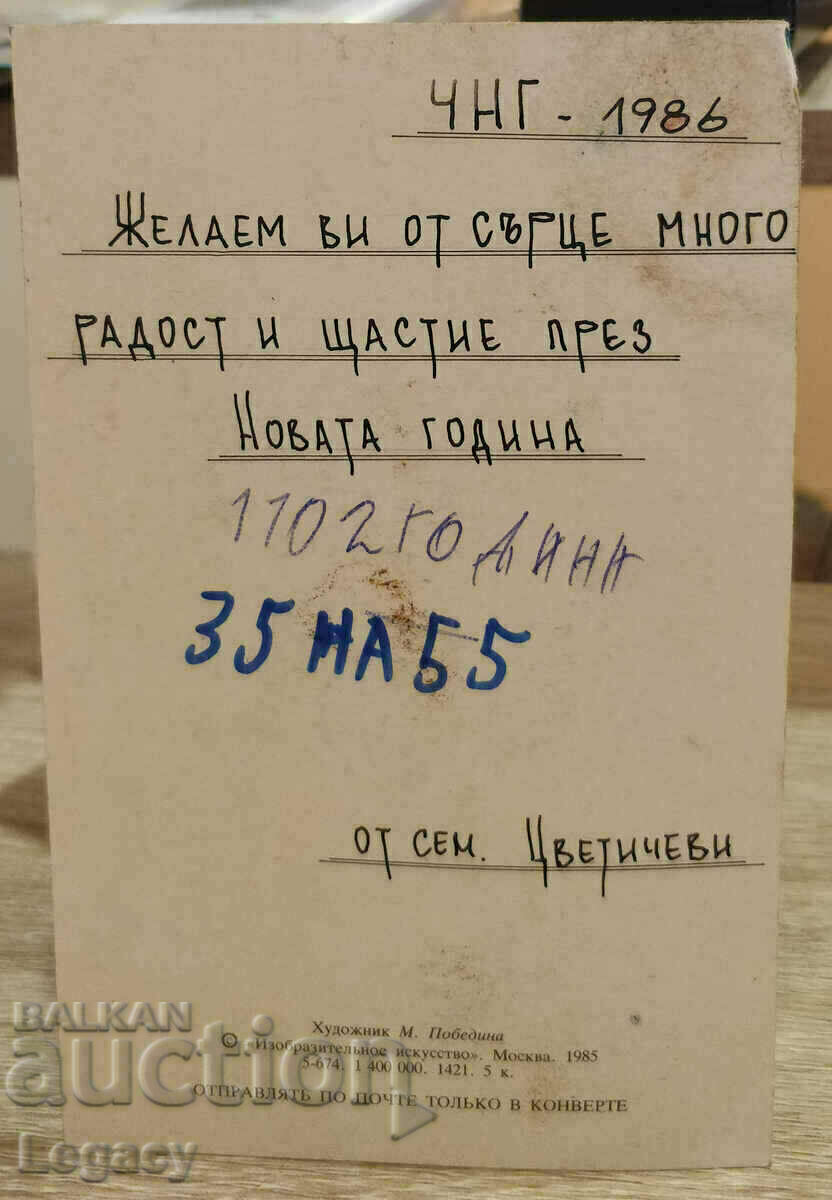 ЧНГ - 1986
ЖЕЛАЕМ ВИ ОТ СЪРЦЕ МНОГО
РАДОСТ И ЩАСТИЕ ПРЕЗ
НОВАТА ГОДИНА
1102 ГОДИНИ
35 НА 55
ОТ СЕМ. ЦВЕТИЧЕВИ
Художник М. Победина
© «Изобразительное искусство». Москва. 1985
5-674. 1 400 000. 1421. 5 к.
ОТПРАВЛЯТЬ ПО ПОЧТЕ ТОЛЬКО В КОНВЕРТЕ
BALKAN
auction
Legacy